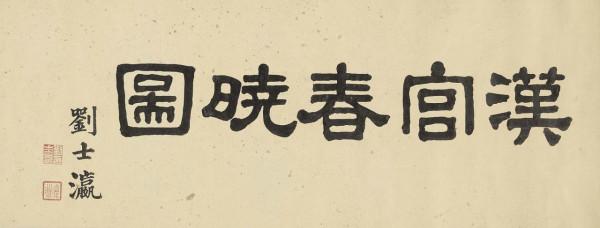 漢宮春曉圖
劉士瀛